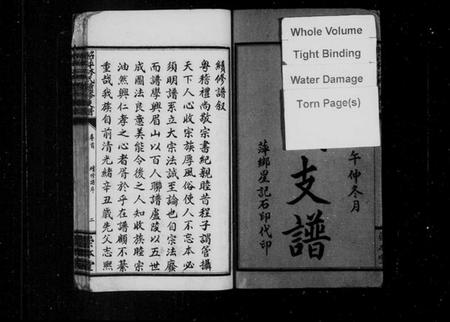 Whole Volume
Tight Binding
Water Damage
Torn Page(s)
午仲冬月
支譜
萍鄉星記石印代印
續修譜叙
粵稽禮尚敬宗書紀親睦昔程子謂管攝
天下人心收宗族厚風俗使人不忘本必
須明譜系立大宗法誠至論也自宗法廢
而譜學興眉山以百人聯譜廬陵以五世
成圖法良意美能令後之人知收族睦宗
油然興仁孝之心者胥於乎在譜顧不綦
重哉我族自前清光緒辛丑歲先父志熙
卷首
續修譜序
二